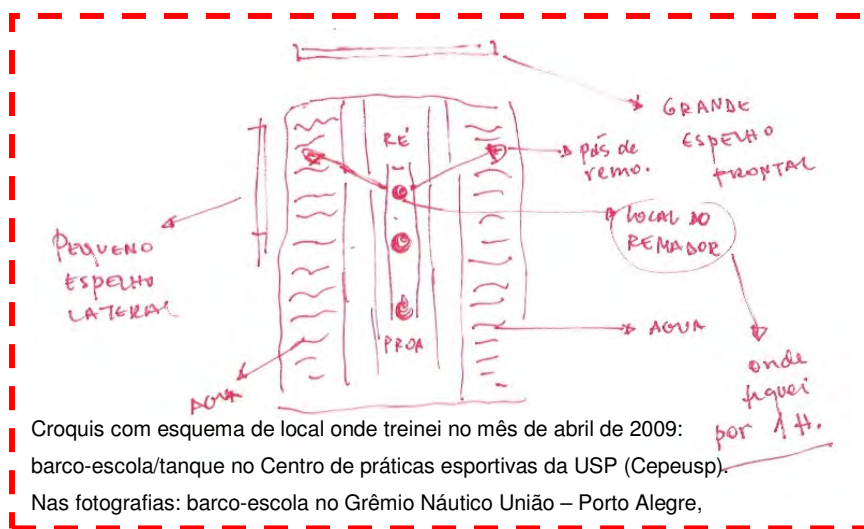 GRANDE
ESPELHO
FRONTAL
RÉ
pás de
remo.
LOCAL DO
REMADOR
PEQUENO
ESPELHO
LATERAL
PROA
AGUA
AGUA
onde
fiquei
por 1 H.
Croquis com esquema de local onde treinei no mês de abril de 2009:
barco-escola/tanque no Centro de práticas esportivas da USP (Cepeusp).
Nas fotografias: barco-escola no Grêmio Náutico União – Porto Alegre,